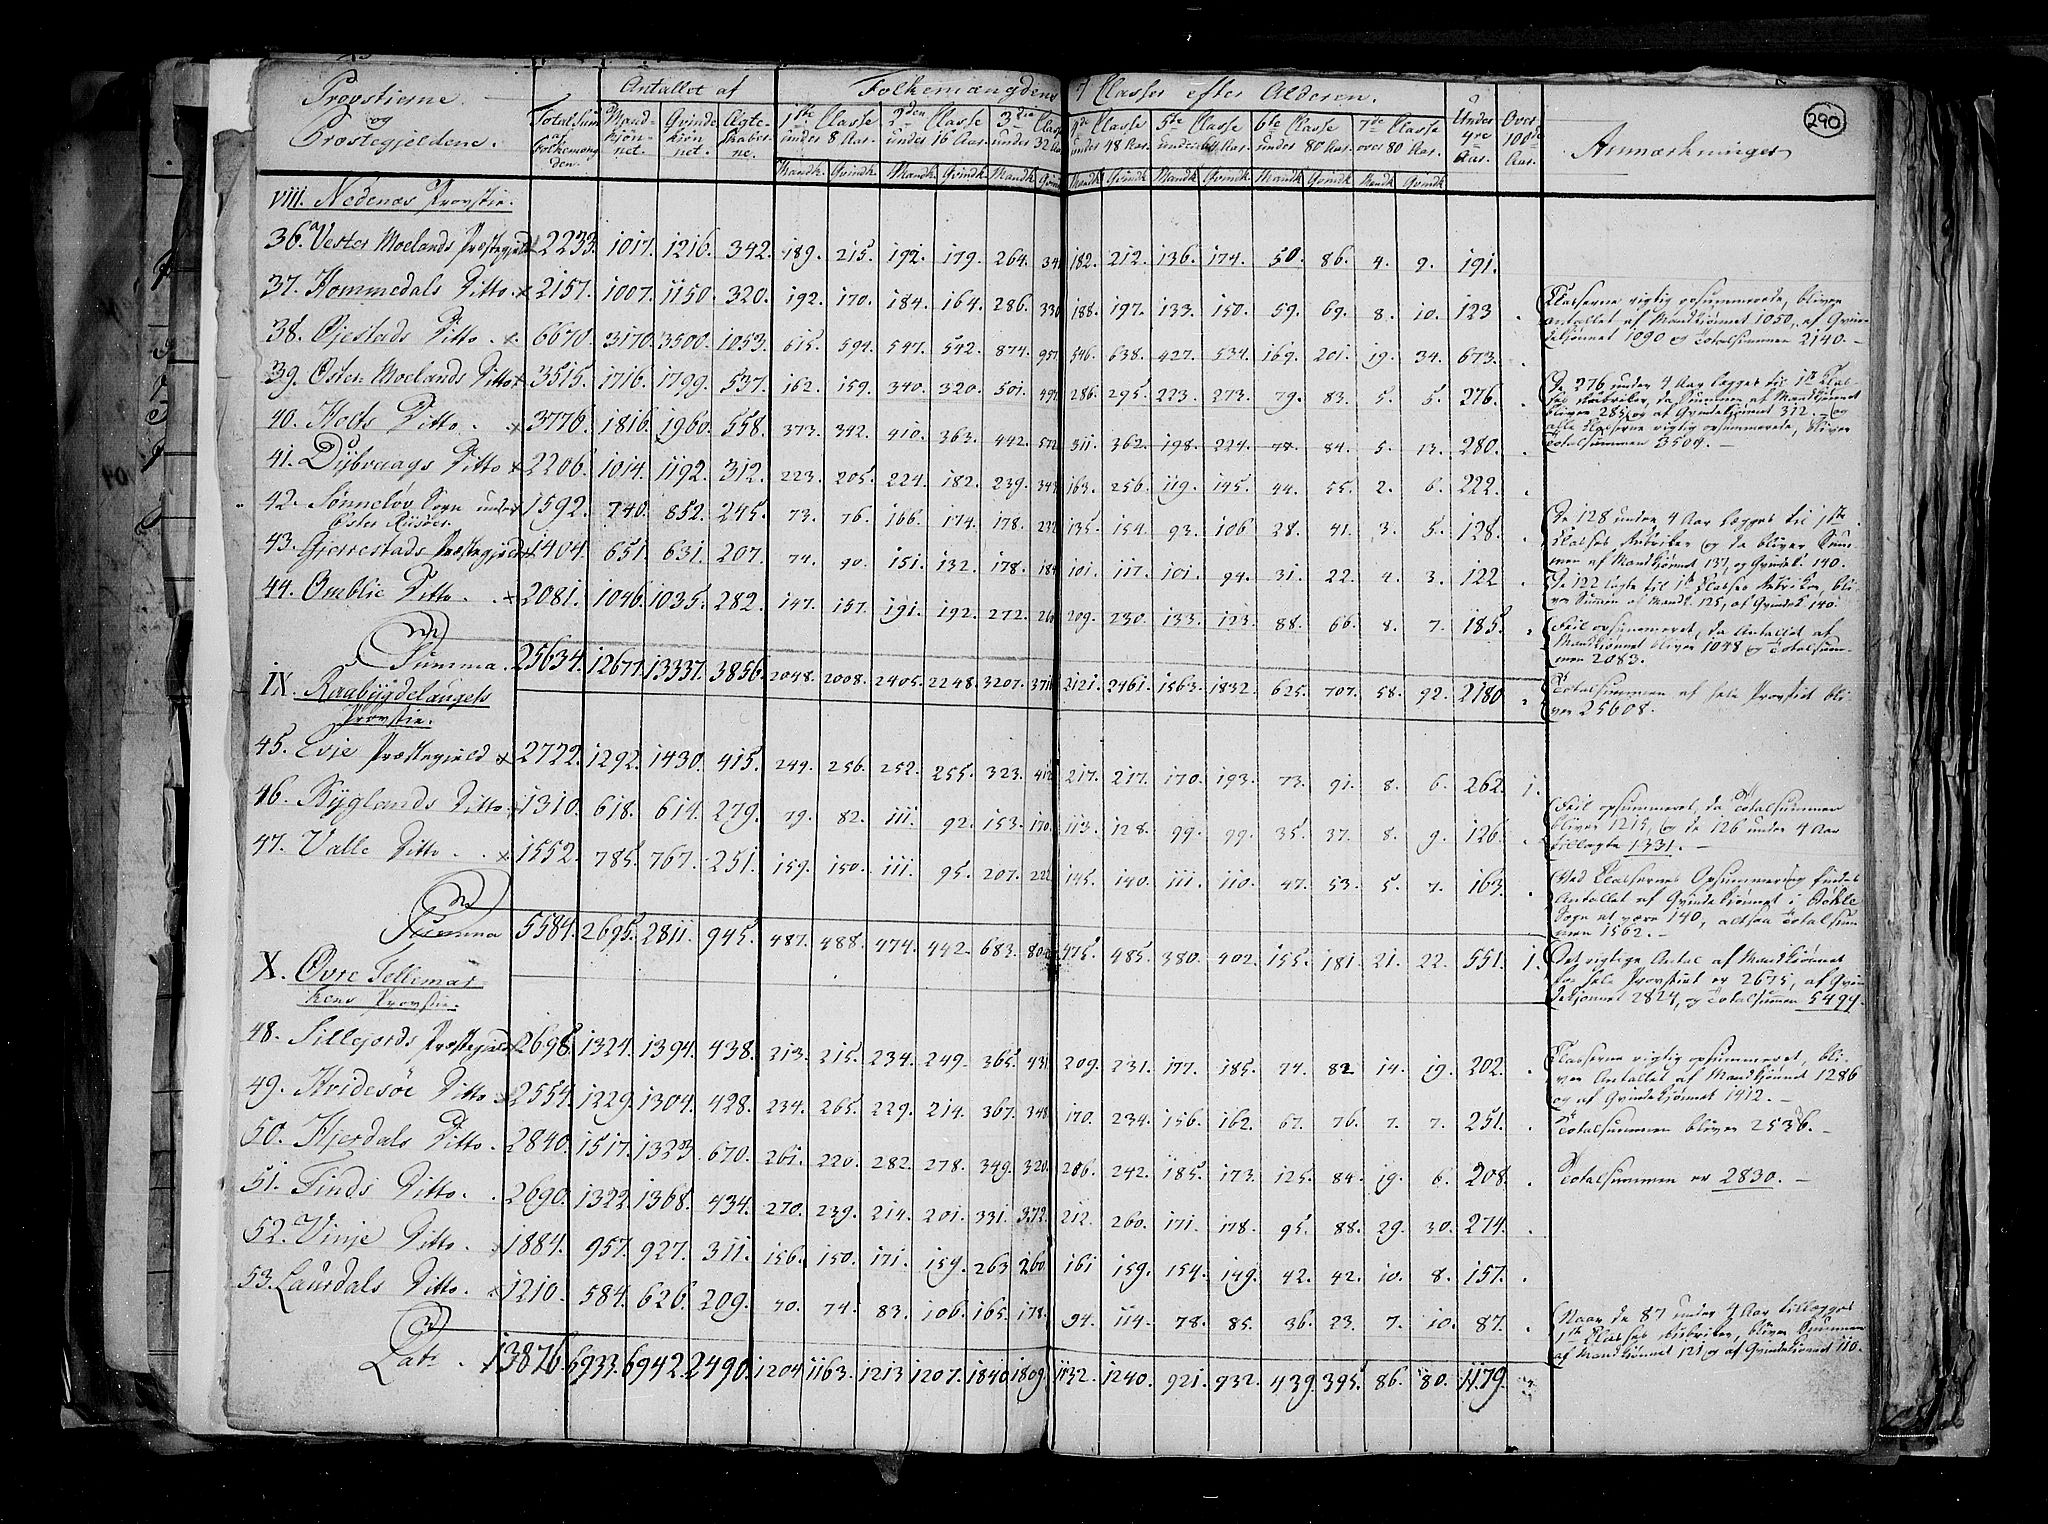 290
Provstierne og Præstegjeldene.
Antallet af
Folkemængdens 7 Classer efter Alderen.
Totalsum af Folkemængden. Mandkiønnet. Qvindekiønnet. Ægteskaberne. 1ste Classe under 8 Aar. 2den Classe under 16 Aar. 3die Classe under 32 Aar. 4de Classe under 48 Aar. 5te Classe under 64 Aar. 6te Classe under 80 Aar. 7de Classe over 80 Aar. Under 4re Aar. Over 100de Aar. Anmærkninger
Mandk. Qvindk. Mandk. Qvindk. Mandk. Qvindk. Mandk. Qvindk. Mandk. Qvindk. Mandk. Qvindk. Mandk. Qvindk.
VIII. Nedenæs Provstie.
36.a Vester Moelands Præstegjeld 2233. 1017. 1216. 342. 189. 215. 192. 179. 264. 182. 212. 136. 174. 50. 86. 4. 9. 191.
37. Hommedals Ditto 2157. 1007. 1150. 320. 192. 170. 184. 164. 286. 330 188. 197. 133. 150. 59. 69. 8. 10. 123
Classerne rigtig opsummerede, bliver
Antallet af Mandkiønnet 1050, af Qvin-
dekjønnet 1090 og Totalsummen 2140.
38. Øjestads Ditto 6670. 3170. 3500. 1053. 615. 594. 547. 542. 874. 957 546. 638. 427. 534. 169. 201. 19. 34. 673.
39. Øster Moelands Ditto 3515. 1716. 1799. 537. 162. 159. 340. 320. 501. 286. 295. 223. 273. 79. 83. 5. 5. 276.
De 276 under 4 Aar lægges til 1ste Clas-
ses Rubriker, da Summen af Mandkjønnet
bliver 285, og af Qvindekjønnet 312. og
alle Classerne rigtig opsummerede, bliver
Totalsummen 3504.
40. Holts Ditto 3776. 1816. 1960. 558. 373. 342. 410. 363. 442. 572 311. 362. 198. 224. 77. 84. 5. 13. 280.
41. Dybvaags Ditto 2206. 1014. 1192. 312. 223. 205. 224. 182. 239. 163. 256. 119. 145. 44. 55. 2. 6. 222.
42. Sønneløv Sogn under 1592. 740. 852. 245. 73. 76. 166. 174. 178. 232 135. 154. 93. 106 28. 41. 3. 5. 128.
Øster Riisøer.
De 128 under 4 Aar lægges til 1ste
Classes Rubriker og da bliver Sum-
men af Mandkjønnet 137, og Qvindek. 140.
43. Gjerrestads Præstegjeld 1404. 651. 631. 207. 74. 90. 151. 132. 178. 184 101. 117. 101. 94. 31. 22. 4. 3. 122
De 122 lagte til 1ste Classes Rubriker, bli-
ver Summen af Mandk. 125, af Qvindek. 140.
44. Omblie Ditto 2081. 1046. 1035. 282. 147. 157. 191. 192. 272. 209. 230. 133. 123. 88. 66. 8. 7. 185.
Feil opsummeret, da Antallet af
Mandkjønnet bliver 1048 og Totalsum-
men 2083.
Summa. 25634. 12677. 13337. 3856. 2048. 2008. 2405. 2248. 3207. 2121. 2461. 1563. 1832. 625. 707. 58. 92. 2180
Totalsummen af hele Provstiet bli-
ver 25608.
IX. Raabygdelaugets
Provstie.
45. Evje Præstegjeld 2722. 1292. 1430. 415. 249. 256. 252. 255. 323. 412 217. 217. 170. 193. 73. 91. 8. 6. 262. 1.
46. Byglands Ditto 1310. 618. 614. 279. 79. 82. 111. 92. 153. 170. 113. 128. 99. 99. 35. 37. 8. 9. 126.
Feil opsummeret, da Totalsummen
bliver 1215, og de 126 under 4 Aar
tillagte 1331.
47. Valle Ditto 1552. 785. 767. 251. 159. 150. 111. 95. 207. 222 145. 140. 111. 110. 47. 53. 5. 7. 163.
Ved Classernes Opsummering findes
Antallet af Qvindekjønnet i
Sogn at være 140, altsaa Totalsum-
men 1562.
Summa 5584. 2695. 2811. 945. 487. 488. 474. 442. 683. 804 475. 485. 380. 402. 155. 181. 21. 22. 551. 1.
Det rigtige Antal af Mandkjønnet
for hele Provstiet er 2675, af Qvin-
dekjønnet 2824, og Totalsummen 5499.
X. Øvre Tellemar-
kens Provstie.
48. Sillejords Præstegjeld 2698. 1324. 1394. 438. 213. 215. 234. 249. 365. 431 209. 231. 177. 185. 74. 82 14. 19. 202.
Classerne rigtig opsummeret, bli-
ver Antallet af Mandkjønnet 1286
og af Qvindekjønnet 1412.
49. Hvidesøe Ditto 2554. 1229. 1304. 428. 234. 265. 229. 214. 367. 348 170. 234. 156. 162. 67. 76. 7. 7. 251.
Totalsummen bliver 2536.
50. Hjerdals Ditto. 2840. 1517. 1323 670. 261. 220. 282. 278. 349. 320. 206. 242. 185. 173. 125. 84. 19. 6. 208.
Totalsummen er 2830.
51. Finds Ditto. 2690. 1322. 1368. 434. 270. 239. 214. 201. 331. 372. 212. 260. 171. 178. 95. 88. 29. 30. 274.
52. Vinje Ditto. 1884. 957. 927. 311. 156. 150. 171. 159. 263 260. 161 159. 154. 149. 42. 42. 10. 8. 157.
53. Laurdals Ditto. 1210. 584. 626. 209. 70. 74. 83. 106. 165. 178. 94. 114. 78. 85. 36. 23. 7. 10. 87.
Naar de 87 under 4 Aar tillægges
1ste Classes Rubriker, bliver Summen
af Mandkjønnet 121 og af Qvindekjønnet 110.
Lats. 13876. 6933. 6942. 2490. 1204 1163. 1213 1207. 1840. 1809. 1132. 1240. 921. 932. 439. 395. 86. 80. 1179.